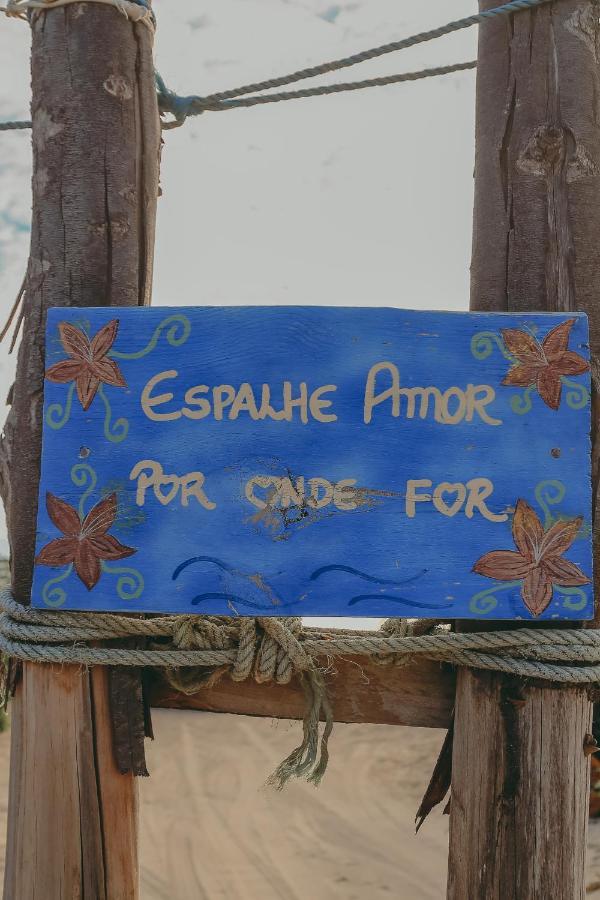 Espalhe Amor
Por onde for